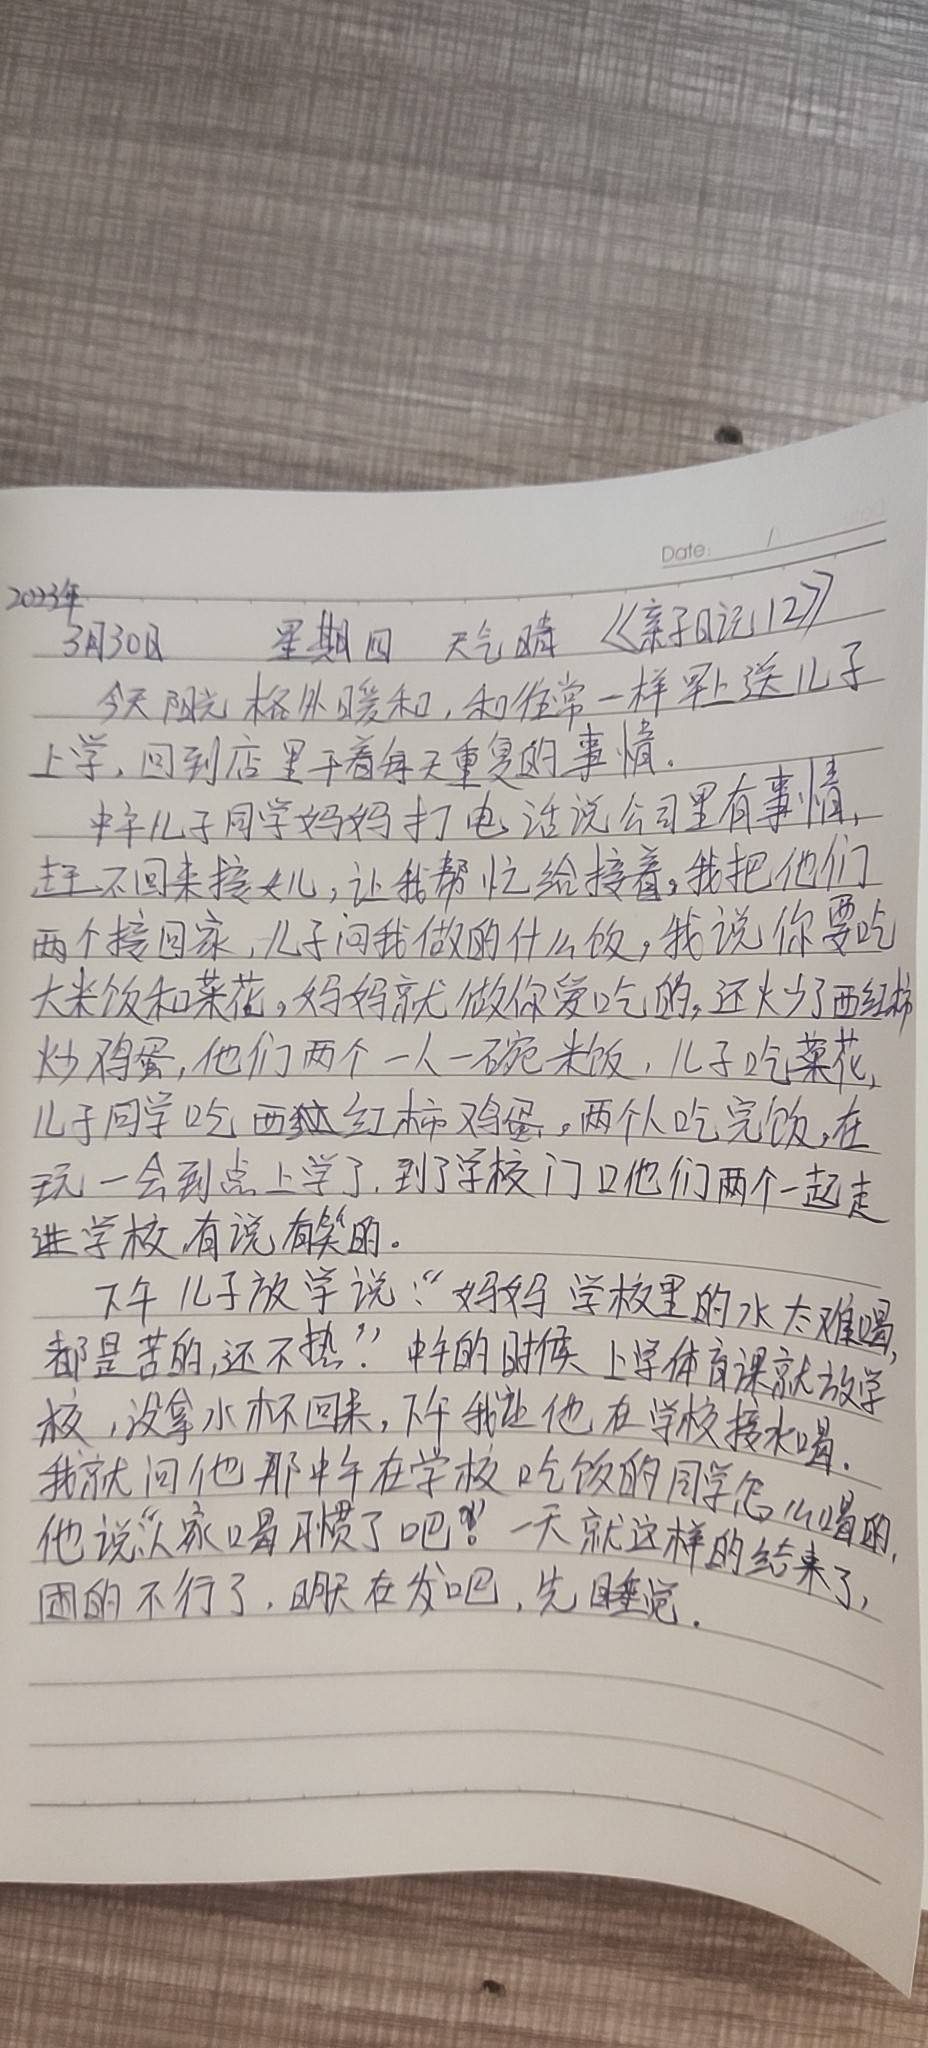 Date: /
2023年
3月30日 星期四 天气晴 《亲子日记12》
今天阳光格外暖和，和往常一样早上送儿子
上学，回到店里干着每天重复的事情．
中午儿子同学妈妈打电话说公司里有事情，
赶不回来接女儿，让我帮忙给接着。我把他们
两个接回家，儿子问我做的什么饭，我说你要吃
大米饭和菜花。妈妈就做你爱吃的，还炒了西红柿
炒鸡蛋，他们两个一人一碗米饭，儿子吃菜花，
儿子同学吃西红柿鸡蛋。两个人吃完饭，在
玩一会到点上学了，到了学校门口他们两个一起走
进学校，有说有笑的。
下午儿子放学说：“妈妈学校里的水太难喝，
都是苦的，还不热”！中午的时候上学体育课就放学
校，没拿水杯回来，下午我让他在学校接水喝．
我就问他那中午在学校吃饭的同学怎么喝的，
他说“人家喝习惯了吧”！一天就这样的结束了，
困的不行了，明天在发吧，先睡觉．